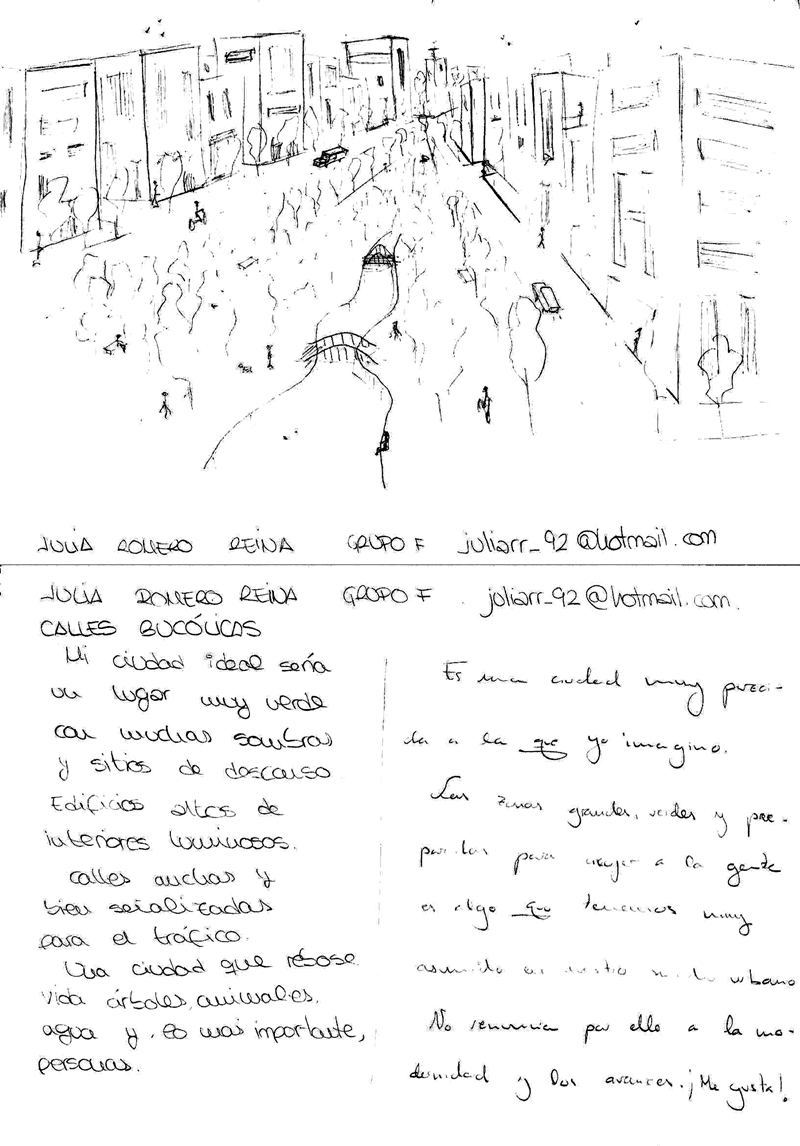 JULIA ROMERO REINA GRUPO F juliarr_92@hotmail.com
JULIA ROMERO REINA GRUPO F . juliarr_92@hotmail.com.
CALLES BUCÓLICAS
Mi ciudad ideal sería
un lugar muy verde
con muchas sombras
y sitios de descanso
Edificios altos de
interiores luminosos.
calles anchas y
bien señalizadas
para el tráfico.
Una ciudad que rebose
vida árboles, animales,
agua y, lo más importante,
personas.
Es una ciudad muy pareci-
da a la que yo imagino.
Las zonas grandes, verdes y pre-
paradas para acoger a la gente
es algo que tenemos muy
asumido en nuestro urbano
No renuncia por ello a la mo-
dernidad y los avances. ¡Me gusta!